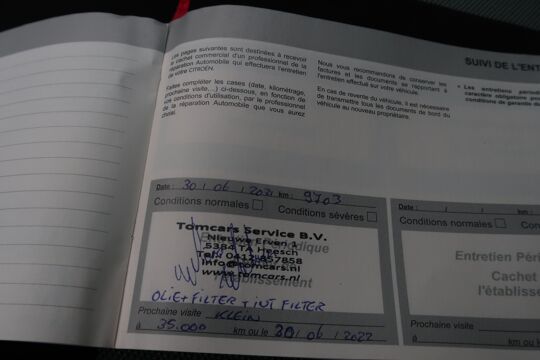 SUIVI DE L'ENT
Les pages suivantes sont destinées à recevoir
le cachet commercial d'un professionnel de la
réparation Automobile qui effectuera l'entretien
de votre CITROËN.
Faites compléter les cases (date, kilométrage,
prochaine visite...) ci-dessous, en fonction de
vos conditions d'utilisation, par le professionnel
de la réparation Automobile que vous aurez
choisi.
Nous vous recommandons de conserver les
factures et les documents se rapportant à
l'entretien effectué sur votre véhicule.
En cas de revente du véhicule, il est nécessaire
de transmettre tous les documents de bord du
véhicule au nouveau propriétaire.
• Les entretiens périod
caractère obligatoire po
conditions de garantie d
Date : 30 / 06 / 2021 km : 9703
Conditions normales Conditions sévères
Tomcars Service B.V.
Nieuwe Erven 1
5384 TA Heesch
Tel. 0412-857858
info@tomcars.nl
www.tomcars.nl
OLIE + FILTER + INT FILTER
Prochaine visite KLEIN
à 35.000 km ou le 30 / 06 / 2022
Date : / / km :
Conditions normales Con
Entretien Péri
Cachet
l'établiss
Prochaine visite
à km ou le